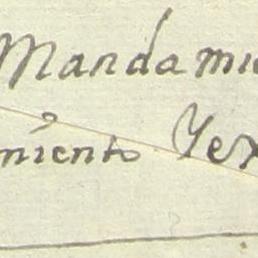 Mandamie
miento Yex